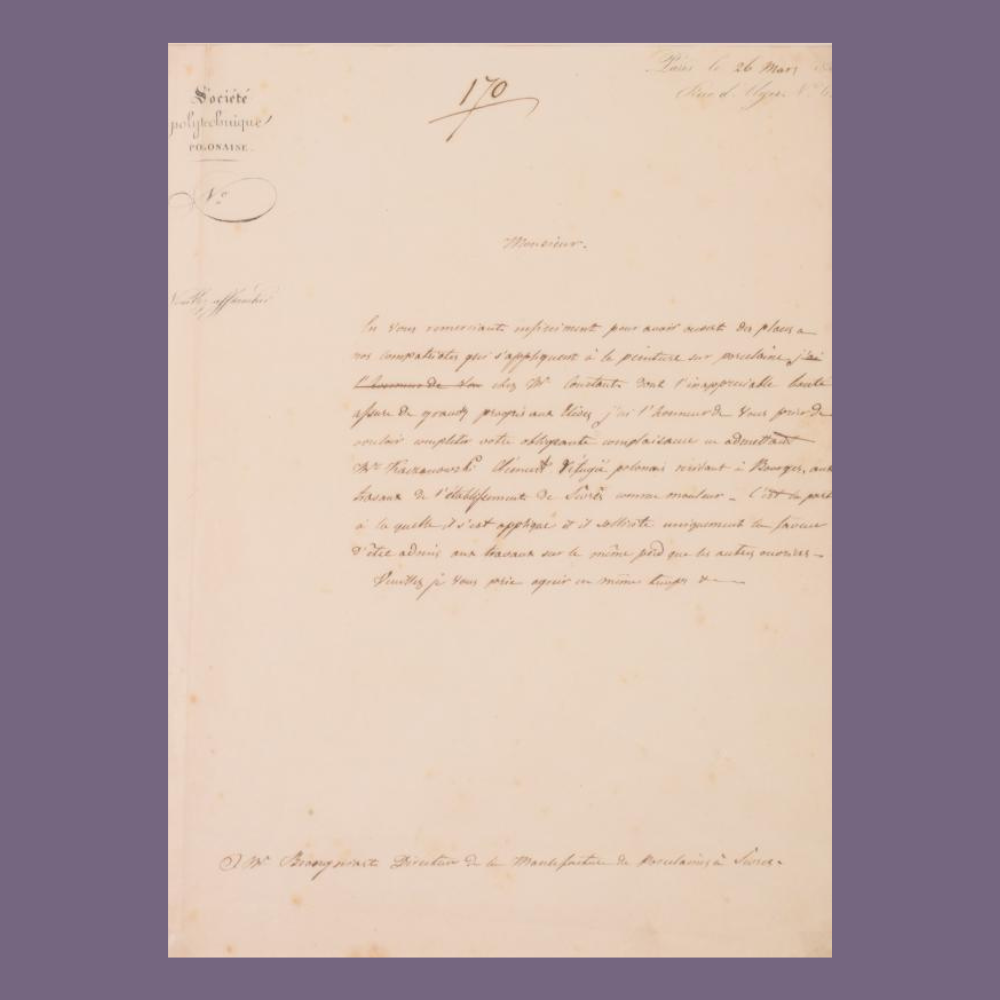 Paris le 26 Mars
170
Société
polytechnique
POLONAISE.
N°
Monsieur.
En vous remerciant infiniment pour avoir des places a
nos compatriotes qui s'appliquent à la peinture sur porcelaine j'ai
l'honneur de chez Mr Constant dont l'inappreciable bonté
assure de grands progrès aux élèves j'ai l'honneur de vous prier de
vouloir completer votre obligeante complaisance en admettant
Mr Kaczanowski Clément réfugié polonais résidant à Bourges, aux
travaux de l'établissement de Sèvres comme mouleur - C'est la part
à la quelle il s'est appliqué et il sollicite uniquement la faveur
d'être admis aux travaux sur le même pied que les autres ouvriers -
Veuillez je vous prie agréer en même temps &
A Mr Brongniart Directeur de la Manufacture de Porcelaines à Sèvres.